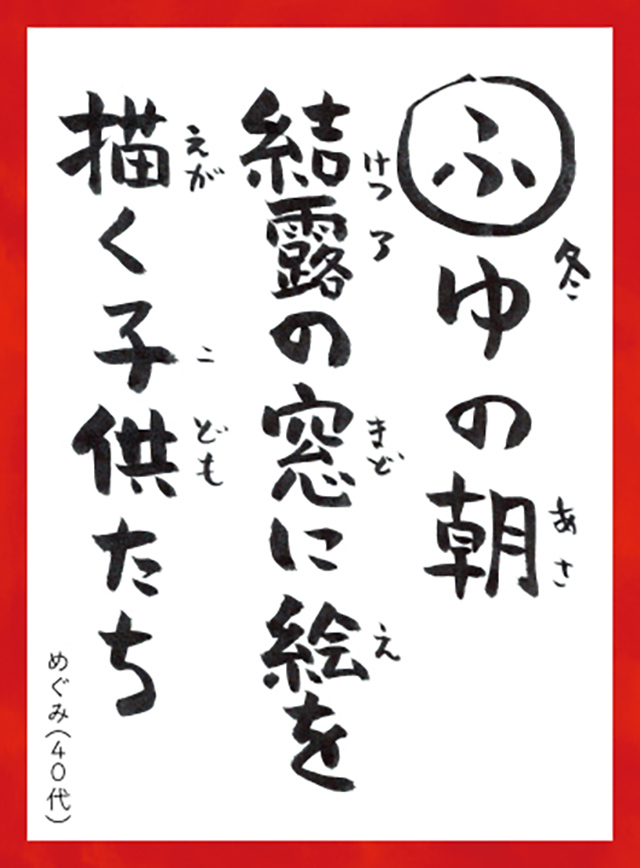 ふゆの朝
結露の窓に絵を
描く子供たち
冬
あさ
けつろ
まど
え
えが
こども
めぐみ(40代)